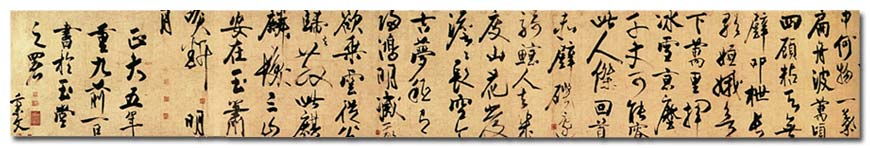 中何物一葉
扁舟波萬頃
四顧粘天無
壁叩枻長
歌姮娥欲
下萬里揮
冰雪京塵
千丈可能容
此人傑回首
赤壁磯邊
騎鯨人去幾
度山花發
澹澹長空今
古夢秪有
歸鴻明滅我
欲乘雲從公
歸去散此麒
麟髮三山
安在玉簫
吹斷明
月
正大五年
重九前一日
書於玉堂
之署
秉文